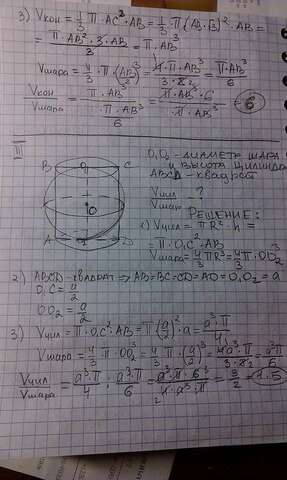 3) Vкон = 1/3 π·AC²·AB = 1/3·π·(AB·√3)²·AB =
= π·AB²·3·AB / 3 = π·AB³
Vшара = 4/3·π·(AB/2)³ = 4·π·AB³ / 3·8₂ = π·AB³ / 6
Vкон / Vшара = π·AB³ / (π·AB³ / 6) = π·AB³·6 / π·AB³ = 6
III
B O₁ C
O
A D
O₁O₂ - диаметр шара
и высота цилиндра
ABCD - квадрат
Vцил / Vшара - ?
РЕШЕНИЕ:
1) Vцил = πR²·h =
= π·O₁C²·AB
Vшара = 4/3 πR³ = 4/3 π·OO₂³
2) ABCD - квадрат ⇒ AB=BC=CD=AD=O₁O₂ = a
O₁C = a/2
OO₂ = a/2
3) Vцил = π·O₁C²·AB = π(a/2)²·a = a³π / 4
Vшара = 4/3·π·OO₂³ = 4/3·π·(a/2)³ = 4a³·π / 3·8₂ = a³π / 6
Vцил / Vшара = a³·π / 4 : a³·π / 6 = a³·π·6³ / ₂4·a³·π = 3/2 = 1.5